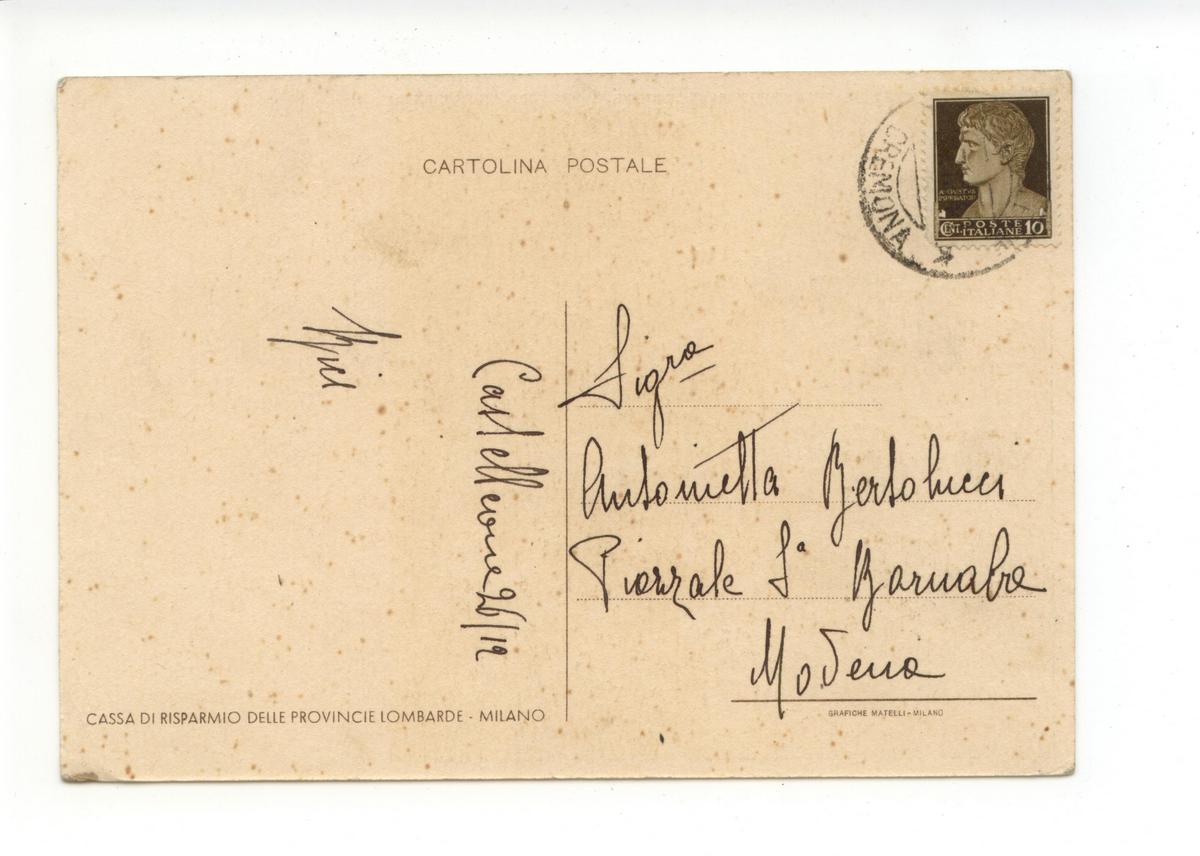 CARTOLINA POSTALE
CREMONA
AVGVSTVS
IMPERATOR
CENT. POSTE ITALIANE 10
Castelleone 26/12
Sigra
Antonietta Bertolucci
Piazzale Sª Barnaba
Modena
CASSA DI RISPARMIO DELLE PROVINCIE LOMBARDE - MILANO
GRAFICHE MATELLI - MILANO